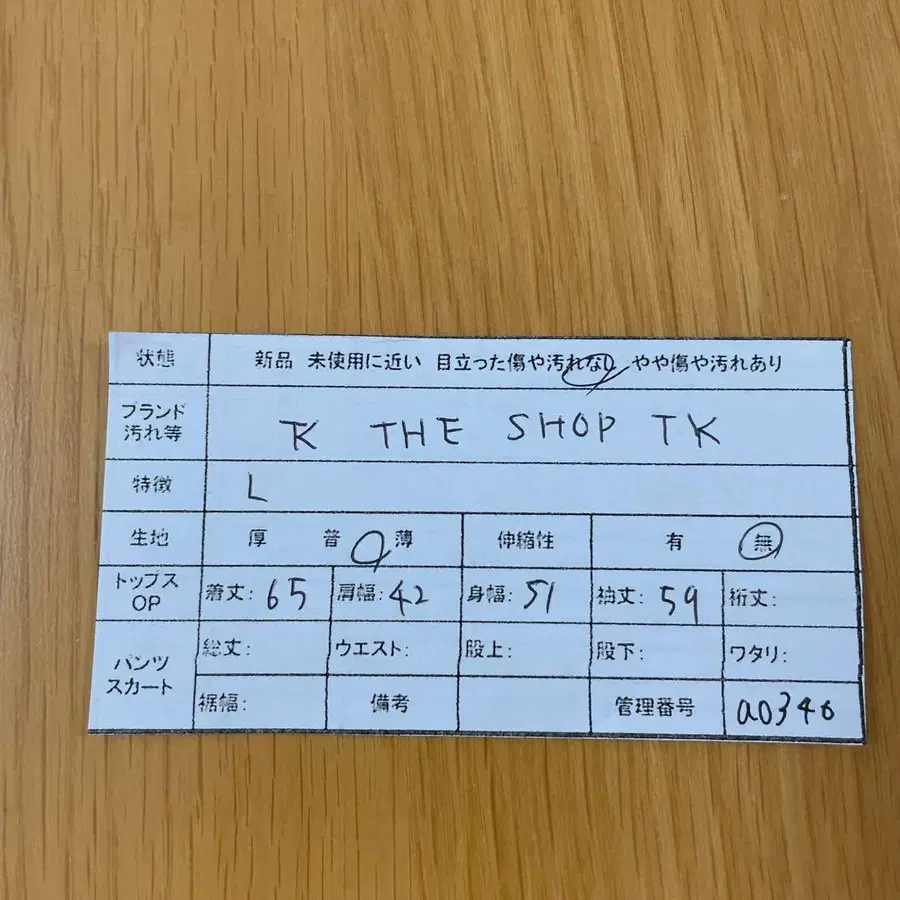 状態 新品 未使用に近い 目立った傷や汚れなし やや傷や汚れあり
ブランド
汚れ等 TK THE SHOP TK
特徴 L
生地 厚 普 薄 伸縮性 有 無
トップス
OP 着丈: 65 肩幅: 42 身幅: 51 袖丈: 59 裄丈:
パンツ
スカート 総丈: ウエスト: 股上: 股下: ワタリ:
裾幅: 備考 管理番号 a0340